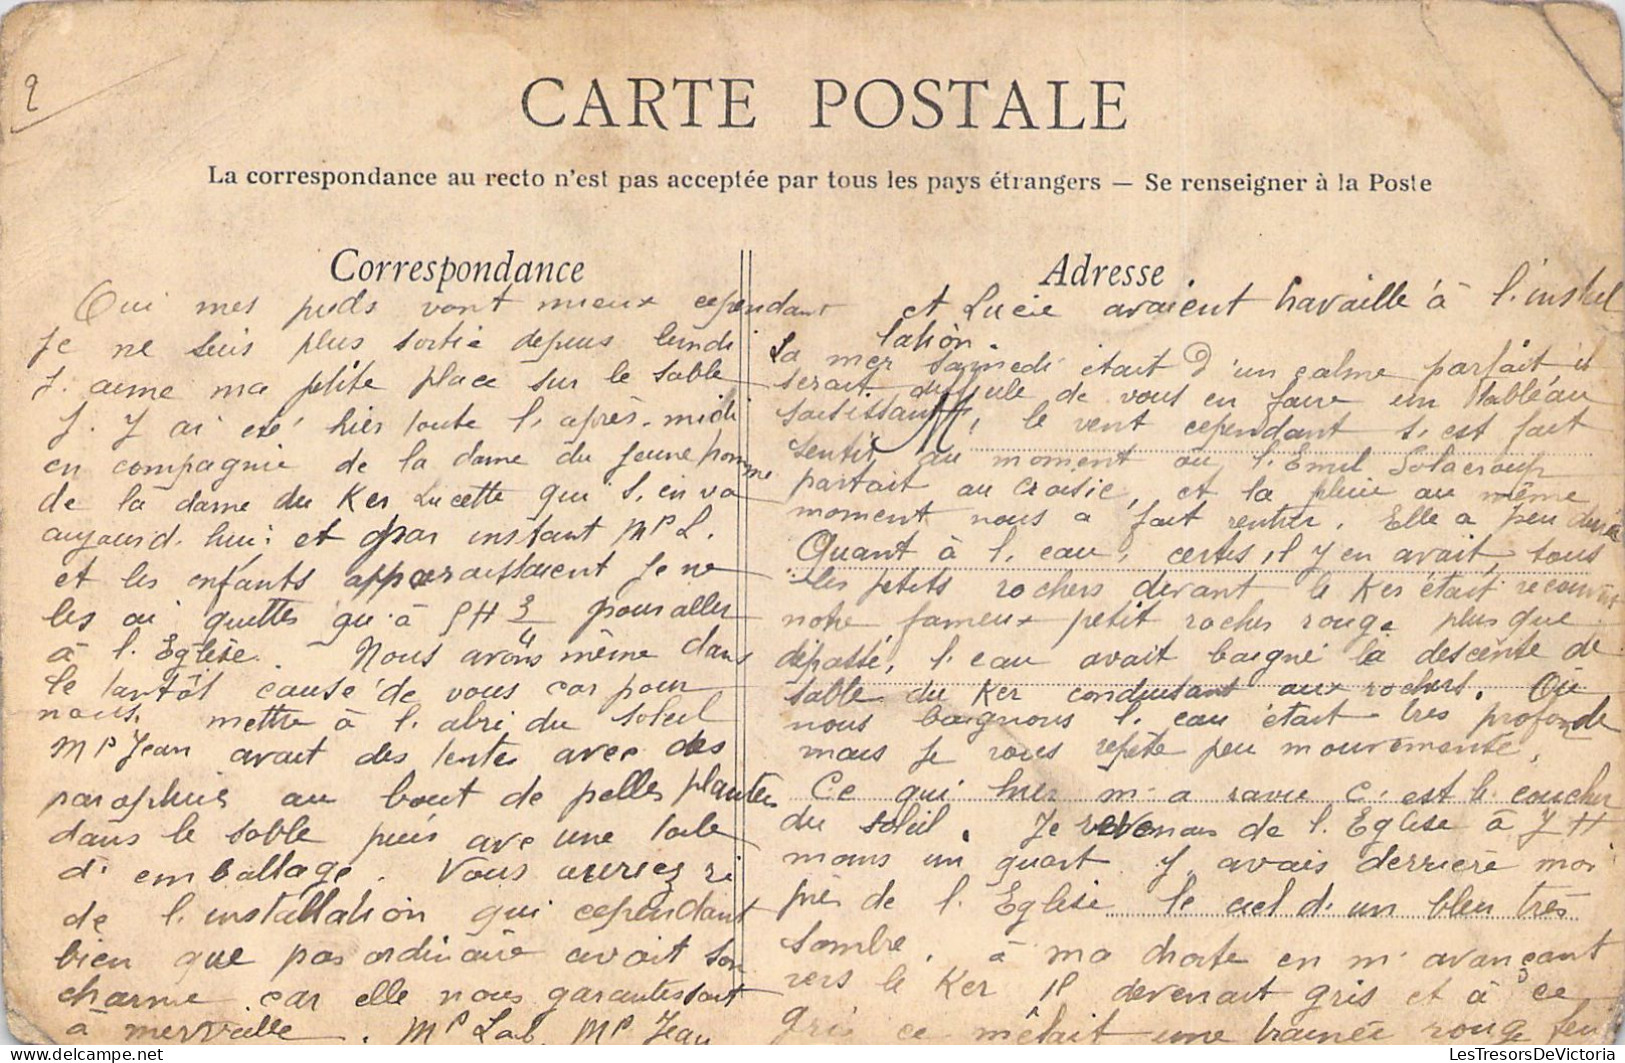 2
CARTE POSTALE
La correspondance au recto n'est pas acceptée par tous les pays étrangers — Se renseigner à la Poste
Correspondance
Oui mes pieds vont mieux cependant
je ne suis plus sortie depuis lundi
J. aime ma petite place sur le sable
J. y ai été hier toute l. après-midi
en compagnie de la dame du jeune homme
de la dame du Ker Lucette qui s. en va
aujourd. hui: et par instant Mr L.
et les enfants apparaissaient je ne
les ai quittés qu'à 5H 3/4 pour aller
à l. Eglise. Nous avons même dans
le tantôt causé de vous car pour
nous mettre à l. abri du soleil
Mr Jean avait des tentes avec des
parapluies au bout de pelles plantées
dans le sable puis avec une toile
d. emballage. Vous auriez ri
de l. installation qui cependant
bien que pas ordinaire avait son
charme car elle nous garantissait
à merveille. Mr Lab. Mr Jean
Adresse
et Lucie avaient travaillé à l. instal
lation.
La mer samedi était d'un calme parfait, il
serait difficile de vous en faire un tableau
saisissant, le vent cependant s. est fait
sentir au moment où l. Emil Solacroup
partait au Croisic, et la pluie au même
moment nous a fait rentrer. Elle a peu durée
Quant à l. eau, certes, il y en avait, tous
les petits rochers devant le Ker était recouverts
notre fameux petit rocher rouge plus que
dépassé, l. eau avait baigné la descente de
sable du Ker conduisant aux rochers. Où
nous baignons l. eau était très profonde
mais je vous répète peu mouvementée.
Ce qui hier m. a ravie c. est le coucher
du soleil. Je revenais de l. Eglise à 7 H
moins un quart J. avais derrière moi
près de l. Eglise le ciel d. un bleu très
sombre. à ma droite en m. avançant
vers le Ker il devenait gris et à ce
gris ce mêlait une trainée rouge feu
LesTresorsDeVictoria